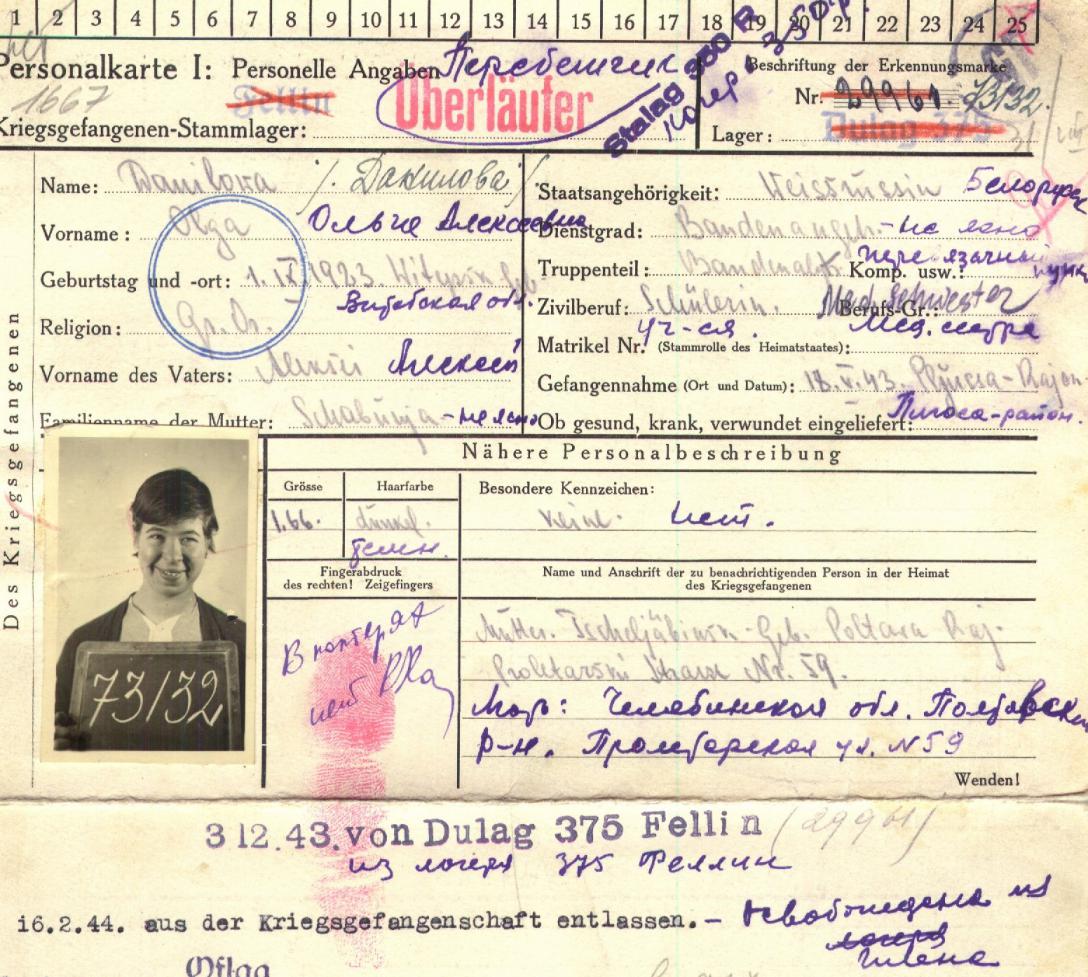 1 2 3 4 5 6 7 8 9 10 11 12 13 14 15 16 17 18 19 20 21 22 23 24 25
Personalkarte I: Personelle Angaben
Перебещик
Überläufer
Stalag 350 R
Beschriftung der Erkennungsmarke
1667
Fellin
Nr. 29961. 73/32.
Kriegsgefangenen-Stammlager:
Lager: Dulag 375
Des Kriegsgefangenen
Name: Danilowa /. Данилова /
Vorname: Olga Ольга Алексеевна
Geburtstag und -ort: 1. IX. 1923. Witepsk Geb.
Витебская обл.
Religion: Gr. Or.
Vorname des Vaters: Alexei Алексей
Familienname der Mutter: - не ясно
Staatsangehörigkeit: Weissrussin Белорус
Dienstgrad: Bandenangeh. - не ясно
Truppenteil: Komp. usw.:
Zivilberuf: Schülerin. Med. Schwester Berufs-Gr.:
уч-ся. Мед. сестра
Matrikel Nr. (Stammrolle des Heimatstaates):
Gefangennahme (Ort und Datum): 18. V. 43. Rajon
район.
Ob gesund, krank, verwundet eingeliefert:
Nähere Personalbeschreibung
Grösse Haarfarbe Besondere Kennzeichen:
1.66. dunkel. keine. нет.
темн.
Fingerabdruck
des rechten! Zeigefingers
Name und Anschrift der zu benachrichtigenden Person in der Heimat
des Kriegsgefangenen
Mutter. Tscheljabinsk - Geb. Poltava Raj.
Proletarski Strasse Nr. 59.
Мать: Челябинская обл. Полтавская
р-н. ул. N 59
73/132
Wenden!
3 12. 43. von Dulag 375 Fellin (29961)
из лагеря 375 Феллин
16.2.44. aus der Kriegsgefangenschaft entlassen. - Освобождена из
лагеря
плена
Oflag